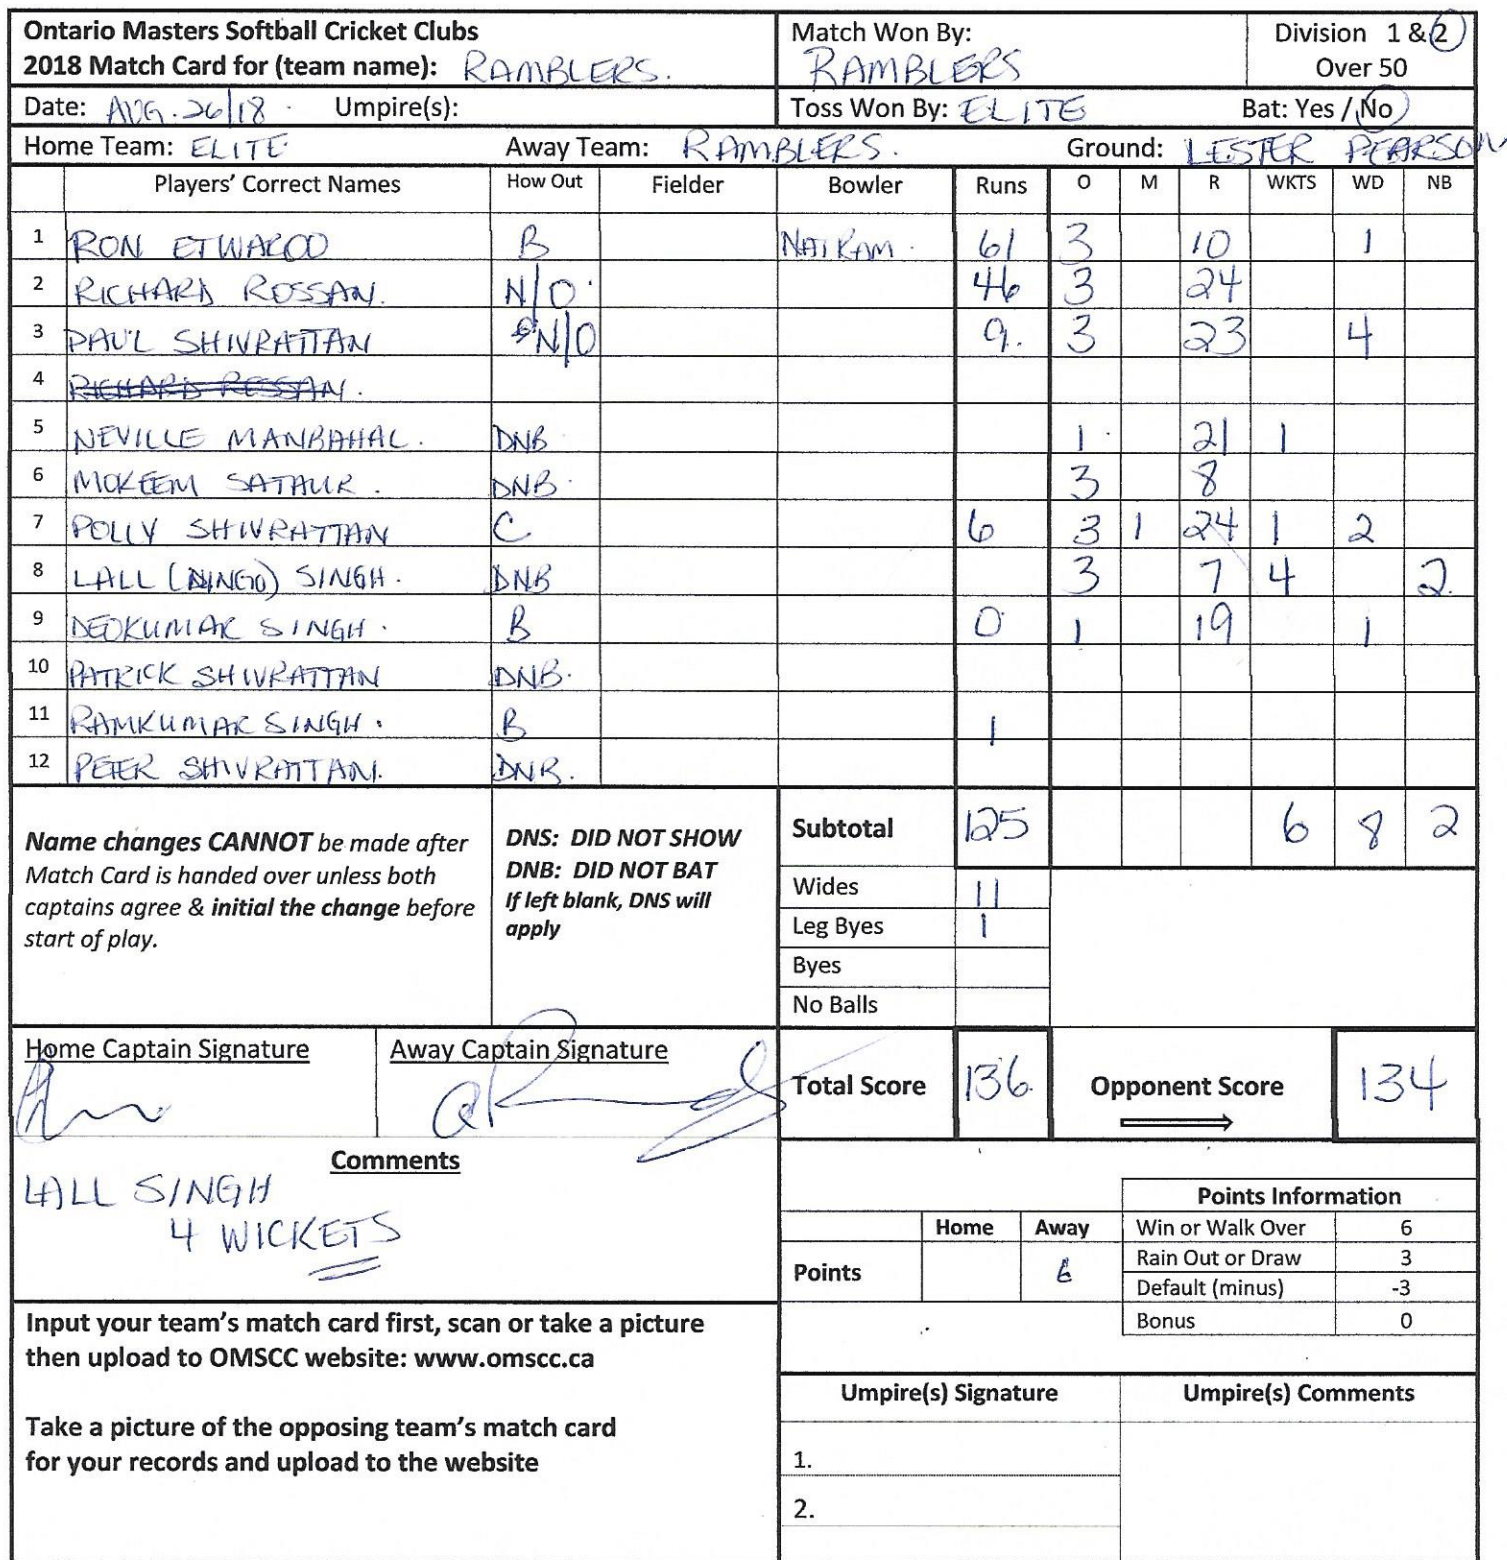 Ontario Masters Softball Cricket Clubs
2018 Match Card for (team name): RAMBLERS.
Match Won By:
RAMBLERS
Division 1 & 2
Over 50
Date: AUG. 26/18 . Umpire(s):
Toss Won By: ELITE Bat: Yes / No
Home Team: ELITE Away Team: RAMBLERS. Ground: LESTER PEARSON
Players' Correct Names How Out Fielder Bowler Runs O M R WKTS WD NB
1 RON ETWAROO B NATRAM. 61 3 10 1
2 RICHARD ROSSAN. N/O. 46 3 24
3 PAUL SHIVRATTAN N/O 9. 3 23 4
4 RICHARD ROSSAN.
5 NEVILLE MANBAHAL. DNB 1 21 1
6 MOKEEM SATAUR. DNB. 3 8
7 POLLY SHIVRATTAN C 6 3 1 24 1 2
8 LALL (DINGO) SINGH. DNB 3 7 4 2.
9 DEOKUMAR SINGH. B 0 1 19 1
10 PATRICK SHIVRATTAN DNB.
11 RAMKUMAR SINGH. B 1
12 PETER SHIVRATTAN. DNB.
Name changes CANNOT be made after
Match Card is handed over unless both
captains agree & initial the change before
start of play.
DNS: DID NOT SHOW
DNB: DID NOT BAT
If left blank, DNS will
apply
Subtotal 125 6 8 2
Wides 11
Leg Byes 1
Byes
No Balls
Home Captain Signature Away Captain Signature
Total Score 136. Opponent Score 134
Comments
LALL SINGH
4 WICKETS
Points Information
Home Away
Points 6
Win or Walk Over 6
Rain Out or Draw 3
Default (minus) -3
Bonus 0
Input your team's match card first, scan or take a picture
then upload to OMSCC website: www.omscc.ca
Take a picture of the opposing team's match card
for your records and upload to the website
Umpire(s) Signature Umpire(s) Comments
1.
2.